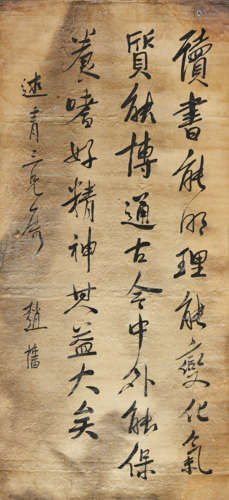 讀書能明理能變化氣
質能博通古今中外能保
養嗜好精神其益大矣
述青三兄
趙